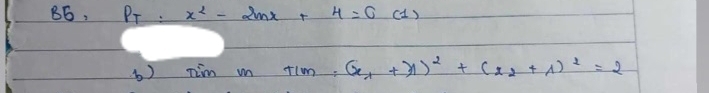 B5, PT : x² - 2mx + 4 = 0 (1)
b) Tìm m T/m : (x₁ + 1)² + (x₂ + 1)² = 2